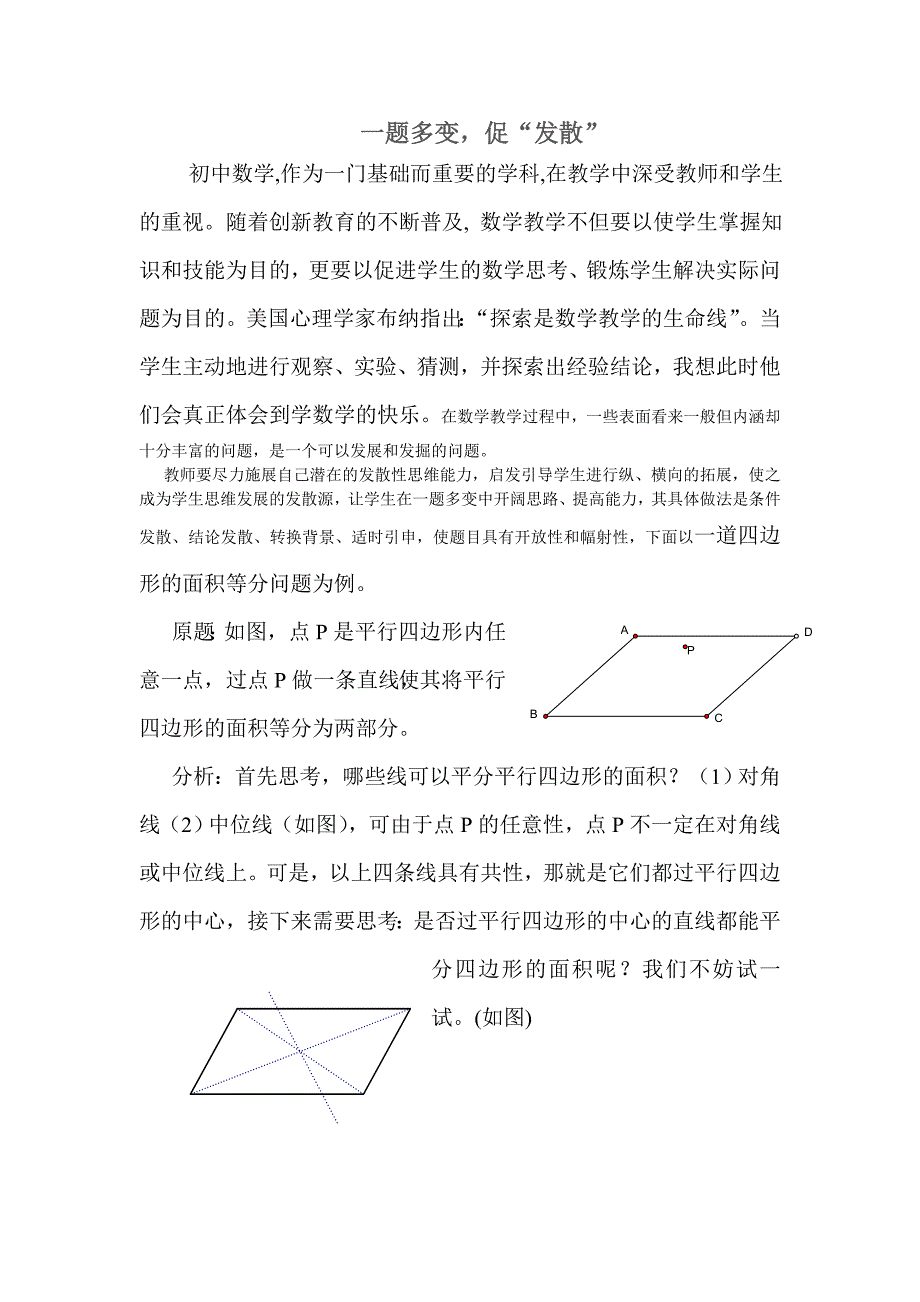 一题多变，促“发散”
初中数学,作为一门基础而重要的学科,在教学中深受教师和学生
的重视。随着创新教育的不断普及, 数学教学不但要以使学生掌握知
识和技能为目的，更要以促进学生的数学思考、锻炼学生解决实际问
题为目的。美国心理学家布纳指出：“探索是数学教学的生命线”。当
学生主动地进行观察、实验、猜测，并探索出经验结论，我想此时他
们会真正体会到学数学的快乐。在数学教学过程中，一些表面看来一般但内涵却
十分丰富的问题，是一个可以发展和发掘的问题。
教师要尽力施展自己潜在的发散性思维能力，启发引导学生进行纵、横向的拓展，使之
成为学生思维发展的发散源，让学生在一题多变中开阔思路、提高能力，其具体做法是条件
发散、结论发散、转换背景、适时引申，使题目具有开放性和幅射性，下面以一道四边
形的面积等分问题为例。
原题：如图，点 P 是平行四边形内任
意一点，过点 P 做一条直线，使其将平行
四边形的面积等分为两部分。
A
D
P
B
C
分析：首先思考，哪些线可以平分平行四边形的面积？（1）对角
线（2）中位线（如图），可由于点 P 的任意性，点 P 不一定在对角线
或中位线上。可是，以上四条线具有共性，那就是它们都过平行四边
形的中心，接下来需要思考：是否过平行四边形的中心的直线都能平
分四边形的面积呢？我们不妨试一
试。(如图)